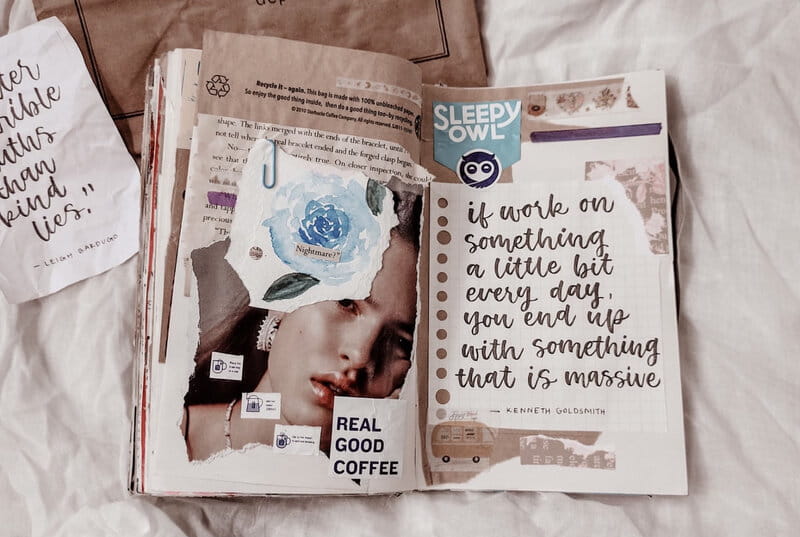 ter
rible
uths
than
kind
lies."
- LEIGH BARDUGO
Recycle it – again. This bag is made with 100% unbleached
So enjoy the good thing inside, then do a good thing too–by recycling
© 2010 Starbucks Coffee Company. All rights reserved.
shape. The links merged with the ends of the bracelet, until
not tell bracelet ended and the forged clasp began.
see that true. On closer inspection,
precious
Nightmare?"
REAL
GOOD
COFFEE
SLEEPY
OWL
if work on
something
a little bit
every day,
you end up
with something
that is massive
→ KENNETH GOLDSMITH